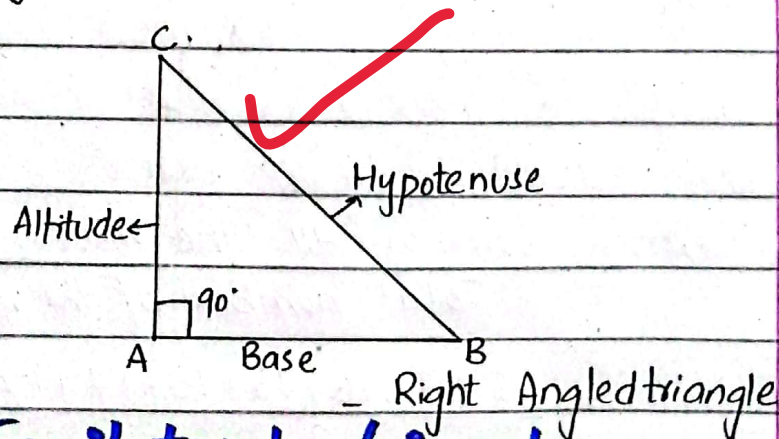 C.
Hypotenuse
Altitude
90°
A Base B
- Right Angled triangle